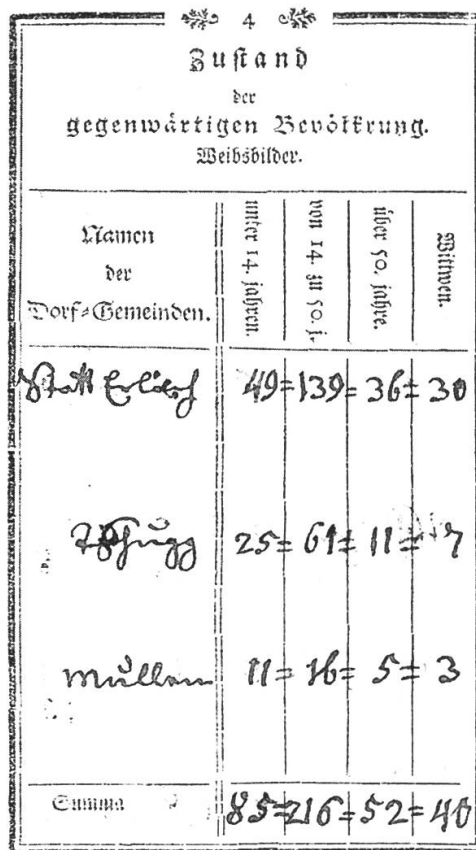 4
Zustand
der
gegenwärtigen Bevölkrung.
Weibsbilder.
Namen
der
Dorf-Gemeinden.
unter 14. jahren.
von 14. zu 50. j.
über 50. jahre.
Wittwen.
Statt Erlach 49 = 139 = 36 = 30
Tschugg 25 = 61 = 11 = 7
Müllen 11 = 16 = 5 = 3
Summa 85 = 216 = 52 = 40